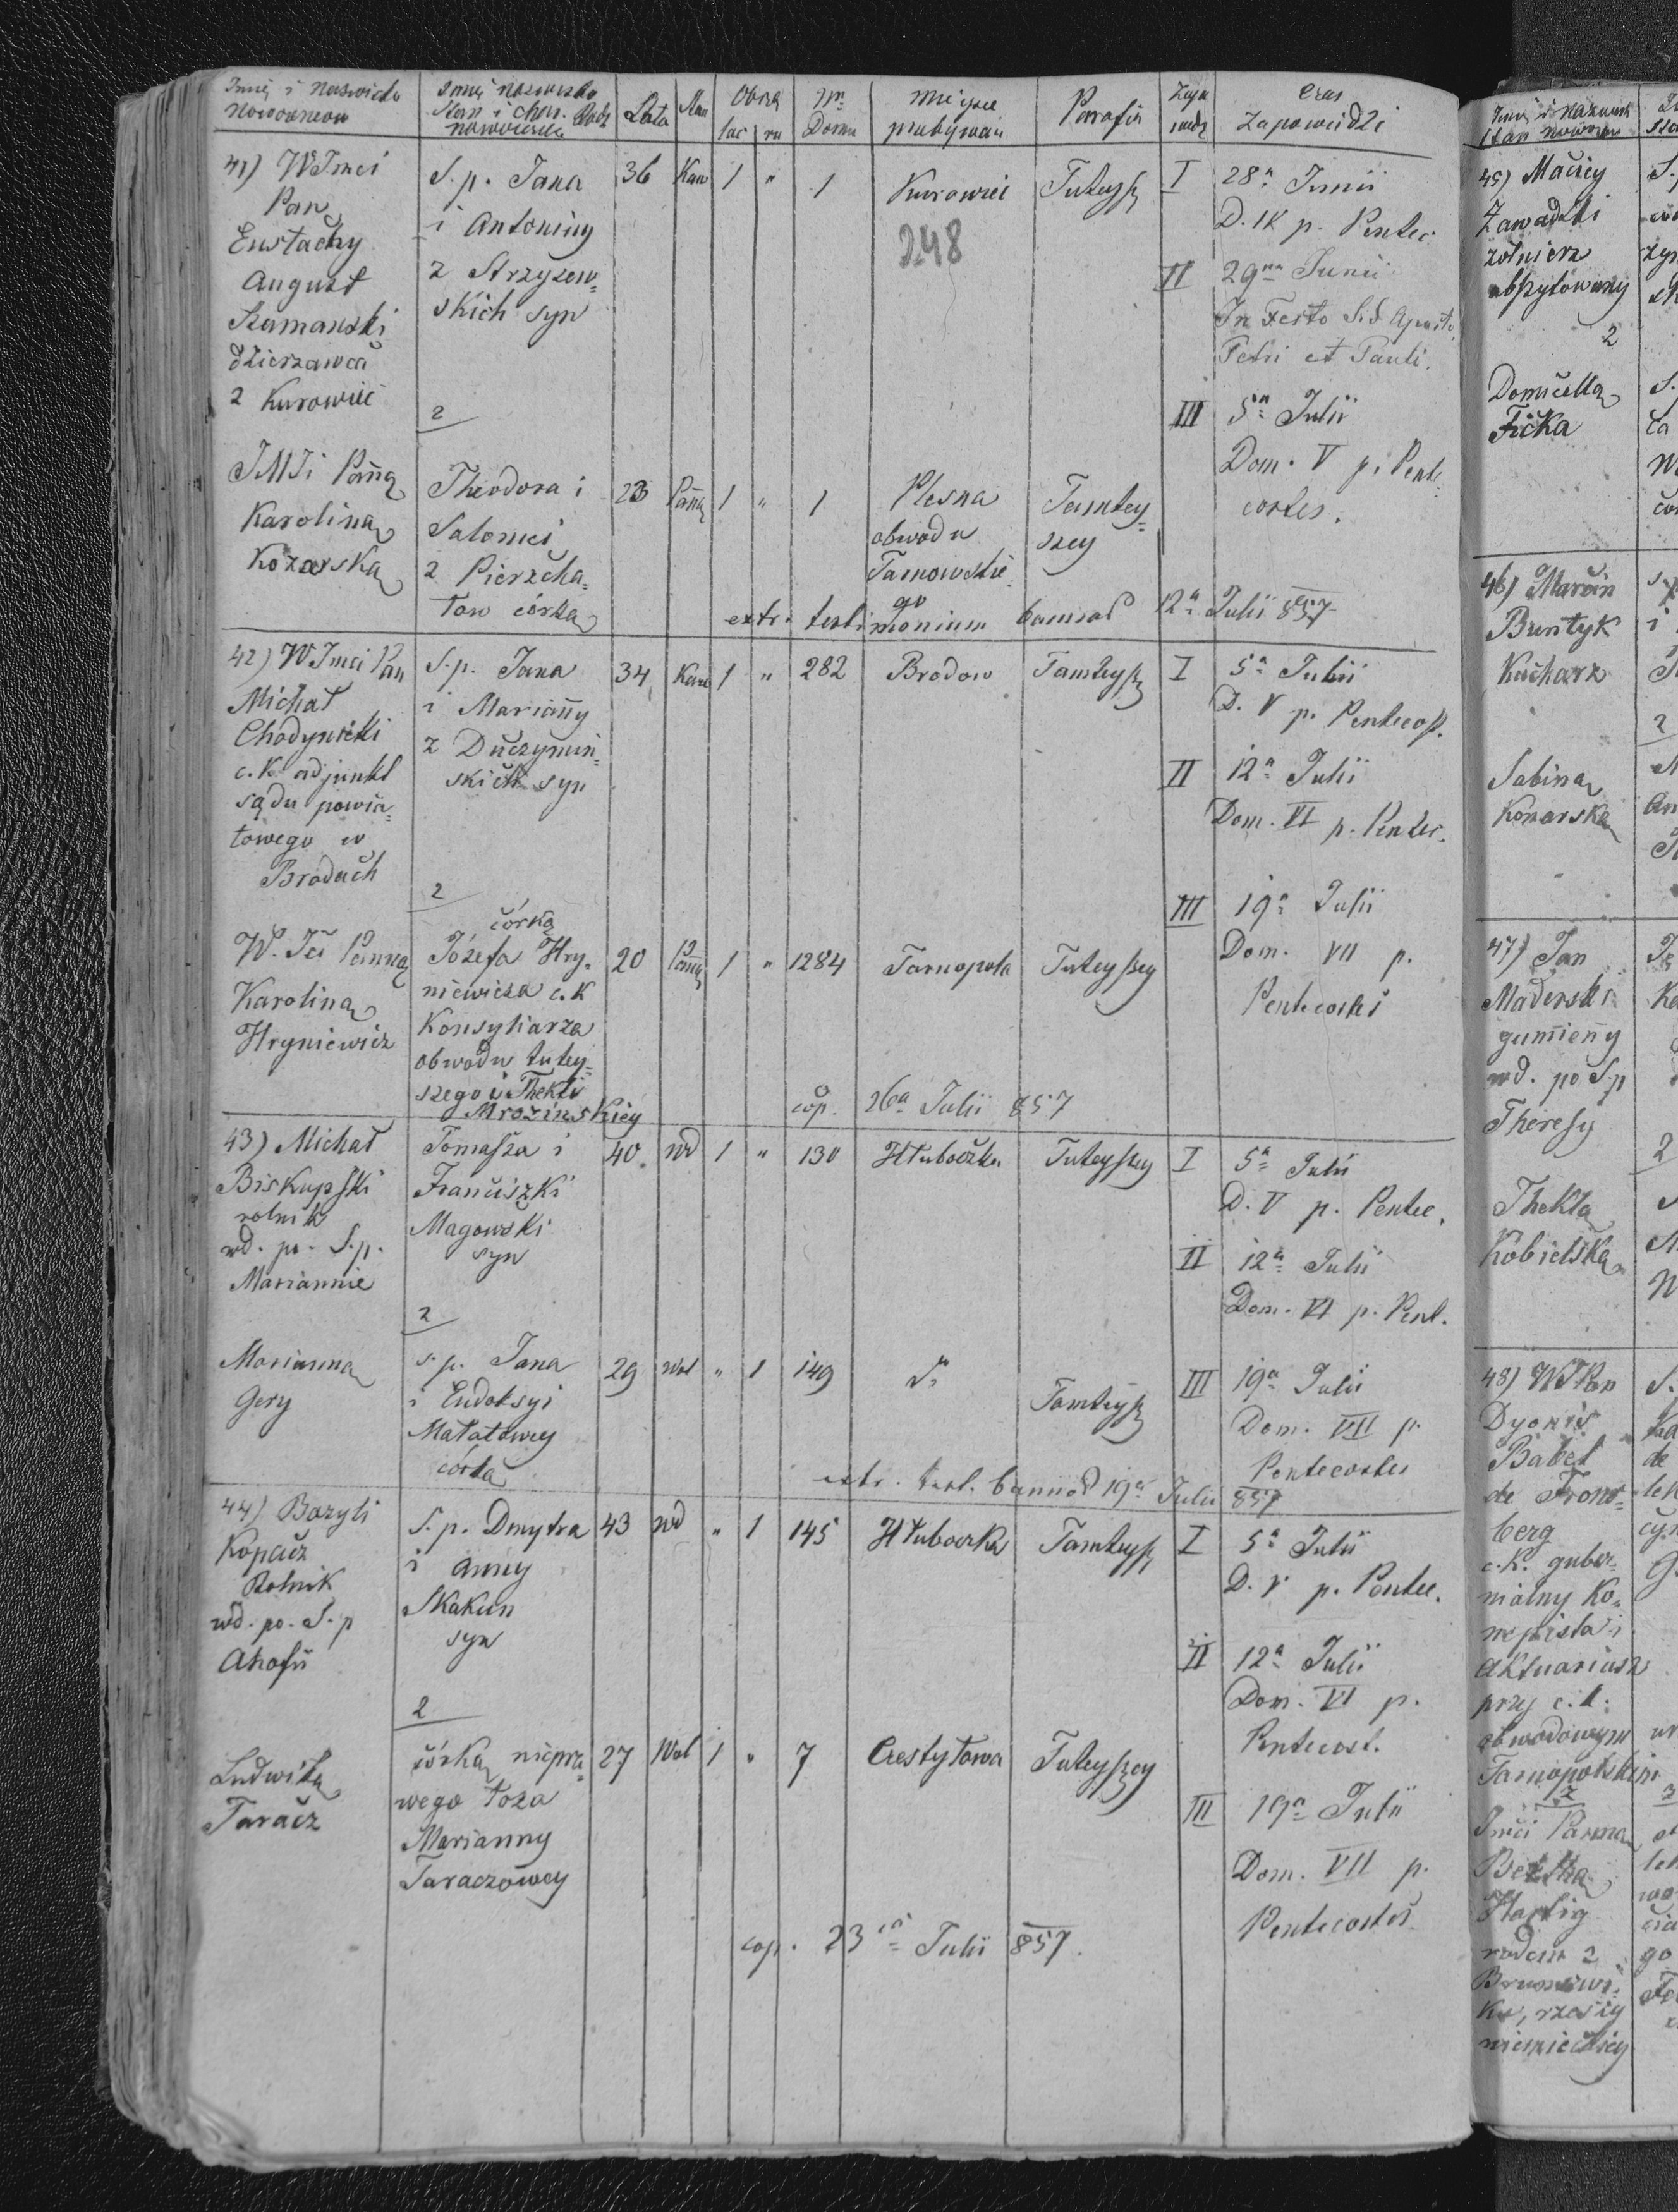 Imię i Nazwisko
Nowożeńców
Imię nazwisko
Stan i char. Rodz
nowożeńca
Lata
Stan
Obrzą
łac
ru
Nr
Domu
Miejsce
przebywan
Parafia
Zapo
wiedz
Czas
Zapowiedzi
41) WJmci
Pan
Eustachy
August
Szamanski
dzierzawca
z Kurowiec
S.p. Jana
i Antoniny
z Strzyzew=
skich syn
36
Kaw
1
"
1
Kurowiec
Tuteysz
248
I
28a Junii
D. IV p. Pentec.
II
29na Junii
In Festo S.S. Aposto
Petri et Pauli.
III
5a Julii
Dom. V p. Pente
costes.
2
JMJi Pañna
Karolina
Kozarska
Theodora i
Salomei
z Pierzcha=
łow córka
23
Pañna
1
"
1
Plesna
obwodu
Tarnowskie
go
Tamtey=
szey
extr. testimonium bannad 12a Julii 857
42) WJmci Pan
Michał
Chodynicki
c.k adjunkt
sądu powia=
towego w
Brodach
S.p. Jana
i Mariañy
z Duczymiń=
skich syn
34
Kaw
1
"
282
Brodow
Tamteysz
I
5a Julii
D. V p. Pentecost.
II
12a Julii
Dom. VI p. Pentec.
III
19a Julii
Dom. VII p.
Pentecostes
2
W. Jci Panna
Karolina
Hryniewicz
córka
Józefa Hry=
niewicza c.k
Konsyliarza
obwodu tutey=
szego i Thekli
Mrozinskiey
20
Pañna
1
"
1284
Tarnopola
Tuteyszey
cop. 26a Julii 857
43) Michał
Biskupski
rolnik
wd. po. S.p.
Mariannie
Tomasza i
Franciszki
Magowski
syn
40
wd
1
"
130
Hłuboczka
Tuteyszey
I
5a Julii
D. V p. Pentec.
II
12a Julii
Dom. VI p. Pent.
III
19a Julii
Dom. VII p.
Pentecostes
2
Marianna
Gery
s.p. Jana
i Eudoksyi
Matałowey
córka
29
Wol
"
1
149
Tamteysz
extr. test. bannad 19a Julii 857
44) Bazyli
Kopacz
Rolnik
wd. po. S.p
Ahafii
S.p. Dmytra
i Anny
Skakun
syn
43
wd
"
1
145
Hłuboczka
Tamteysz
I
5a Julii
D. V p. Pentec.
II
12a Julii
Dom. VI p.
Pentecost.
III
19a Julii
Dom. VII p.
Pentecostes
2
Ludwika
Taracz
córka niepra=
wego łoza
Marianny
Taraczowey
27
Wol
1
"
7
Czestyłowa
Tuteyszey
cop. 23ia Julii 857.
Imię i Nazwisk
Stan
45) Maciey
Zawadzki
żołnierz
abszytowany
2
Domicella
Ficka
46) Marcin
Buntyk
Kucharz
2
Sabina
Konarska
47) Jan
Maderski
gumieñy
wd. po S.p
Theresy
2
Thekla
Kobielska
48) WJPan
Dyonis
Babel
de Frons=
berg
c.k. guber=
nialny Ko=
nepista i
Aktuariusz
przy c.k.
obwodowym
Tarnopolskim
2
Jmci Panna
Bertha
Hartig
rodem z
Brunswi=
ku, rzeszy
niemieckiey